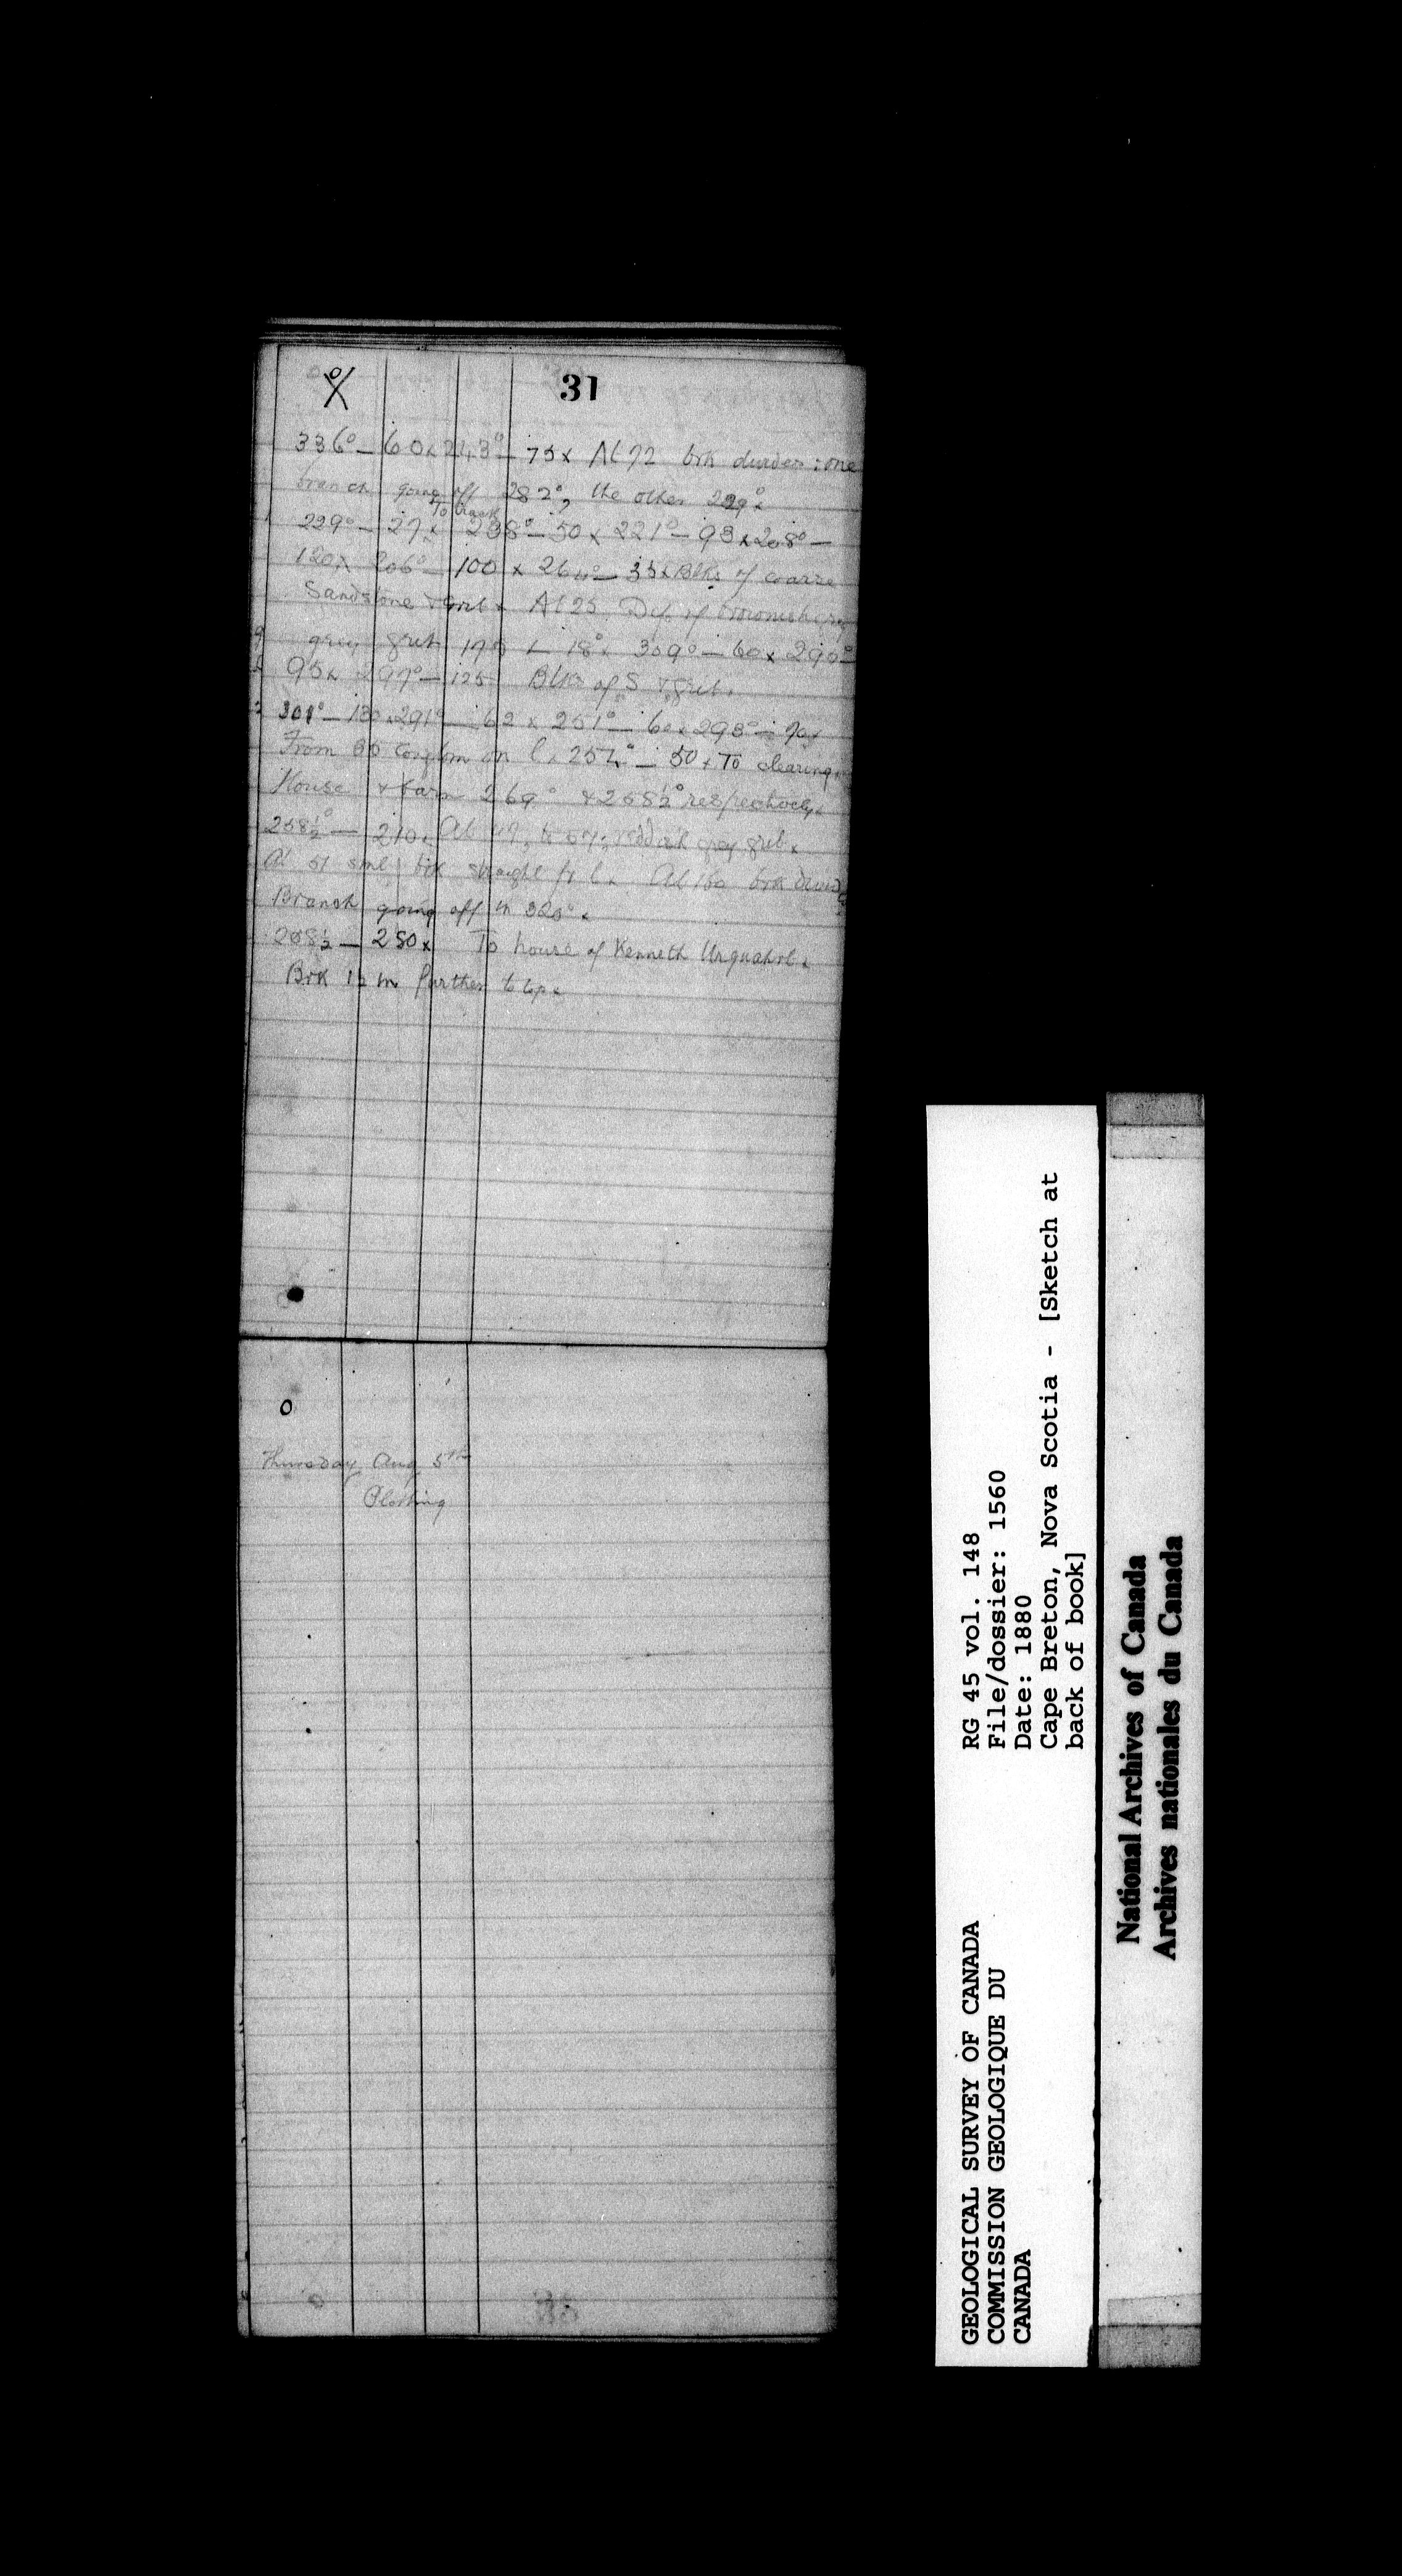 31
336° — 60 x 243° — 75 x At 72 brk divides : one
branch going off 282°, the other 229° x
To track
229° — 27 x 238° — 50 x 221° — 93 x 208° —
120 x 206° — 100 x 264° — 35 x Blks of coarse
Sandstone & grit x At 25 Dip of brownish
grey grit 175 L 18° x 309° — 60 x 290° —
95 x 297° — 125 Blks of S & grit.
301° — 130 x 291° — 62 x 251° — 60 x 293° —
From 35 conglom on l. x 257° — 50 x To clearing
House & barn 269° & 258½° respectively x
258½° — 210 x At 47, to 57, reddish grey grit x
At 51 sml brk straight fr l x At 180 brk
Branch going off in 320° x
258½ — 280 x To house of Kenneth Urquahrt x
Brk ½ m further to top x
O
Thursday Aug 5th
Plotting
RG 45 vol. 148
File/dossier: 1560
Date: 1880
Cape Breton, Nova Scotia - [Sketch at
back of book]
GEOLOGICAL SURVEY OF CANADA
COMMISSION GEOLOGIQUE DU
CANADA
National Archives of Canada
Archives nationales du Canada